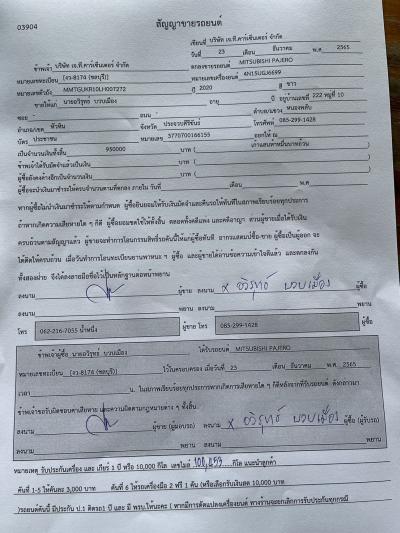 03904
สัญญาขายรถยนต์
เขียนที่ บริษัท เจ.ที.คาร์เซ็นเตอร์ จำกัด
วันที่ 23 เดือน ธันวาคม พ.ศ. 2565
ข้าพเจ้า บริษัท เจ.ที.คาร์เซ็นเตอร์ จำกัด ตกลงขายรถยนต์ MITSUBISHI PAJERO
หมายเลขทะเบียน (งว-8174 (ชลบุรี)) หมายเลขเครื่องยนต์ 4N15UGJ6699
หมายเลขตัวถัง MMTGUKR10LH007272 ปี 2020 สี ขาว
ขายให้แก่ นายอวิรุทธ์ บวบเมือง อายุ ปี อยู่บ้านเลขที่ 222 หมู่ที่ 10
ซอย - ถนน - ตำบล/แขวง หนองพลับ
อำเภอ/เขต หัวหิน จังหวัด ประจวบคีรีขันธ์ โทรศัพท์ 085-299-1428
บัตร ประชาชน หมายเลข 3770700166155 ออกให้ ณ
เป็นจำนวนเงินทั้งสิ้น 950000 บาท ( เก้าแสนห้าหมื่นบาทถ้วน )
ข้าพเจ้าได้รับมัดจำแล้วเป็นเงิน บาท ( )
ผู้ซื้อยังคงค้างอีกเป็นจำนวนเงิน บาท ( )
ผู้ซื้อจะนำเงินมาชำระให้ครบจำนวนตามที่ตกลง ภายใน วันที่ เดือน พ.ศ.
หากผู้ซื้อไม่นำเงินมาชำระให้ตามกำหนด ผู้ซื้อยินยอมให้รับเงินมัดจำและคืนรถให้ทันทีในสภาพเรียบร้อยทุกประการ
ถ้าหากเกิดความเสียหายใด ๆ ก็ดี ผู้ซื้อยอมชดใช้ให้ทั้งสิ้น ตลอดทั้งคดีแพ่ง และคดีอาญา ส่วนผู้ขายเมื่อได้รับเงิน
ครบถ้วนตามสัญญาแล้ว ผู้ขายจะทำการโอนกรรมสิทธิ์รถคันนี้ให้แก่ผู้ซื้อทันที อากรแสตมป์ซื้อ-ขาย ผู้ซื้อเป็นผู้ออก จะ
ได้คิดให้ครบถ้วน เมื่อวันทำการโอนทะเบียนยานพาหนะ ฯ ผู้ซื้อ และผู้ขายได้อ่านข้อความเข้าใจดีแล้ว และตกลงกัน
ทั้งสองฝ่าย จึงได้ลงลายมือชื่อไว้เป็นหลักฐานต่อหน้าพยาน
ลงนาม ผู้ขาย ลงนาม x อวิรุทธ์ บวบเมือง ผู้ซื้อ
ลงนาม พยาน ลงนาม พยาน
โทร 062-216-7055 น้ำหนึ่ง ผู้ขาย โทร 085-299-1428 ผู้ซื้อ
ข้าพเจ้าผู้ซื้อ นายอวิรุทธ์ บวบเมือง ได้รับรถยนต์ MITSUBISHI PAJERO
หมายเลขทะเบียน (งว-8174 (ชลบุรี)) ไว้ในครอบครอง เมื่อวันที่ 23 เดือน ธันวาคม พ.ศ. 2565
เวลา น. ในสภาพเรียบร้อยทุกประการหากเกิดการเสียหายใด ๆ ก็ดีหลังจากที่รับรถยนต์ ดังกล่าวมา
ข้าพเจ้าขอรับผิดชอบค่าเสียหาย และความผิดตามกฎหมายต่าง ๆ ทั้งสิ้น
ลงนาม ผู้ขาย (ผู้มอบรถ) ลงนาม x อวิรุทธ์ บวบเมือง ผู้ซื้อ (ผู้รับรถ)
ลงนาม พยาน ลงนาม พยาน
หมายเหตุ รับประกันเครื่อง และ เกียร์ 1 ปี หรือ 10,000 กิโล เลขไมล์ 100,453 กิโล แนะนำลูกค้า
คันที่ 1-5 ให้คันละ 3,000 บาท คันที่ 6 ให้รถเครื่องมือ 2 ฟรี 1 คัน (หรือเลือกรับเงินสด 10,000 บาท
)รถยนต์คันนี้ มีประกัน ป.1 ติดรถ1 ปี และ มี พรบ.ให้นะคะ ( หากมีการดัดแปลงเครื่องยนต์ ทางร้านจะยกเลิกการรับประกันทุกกรณี